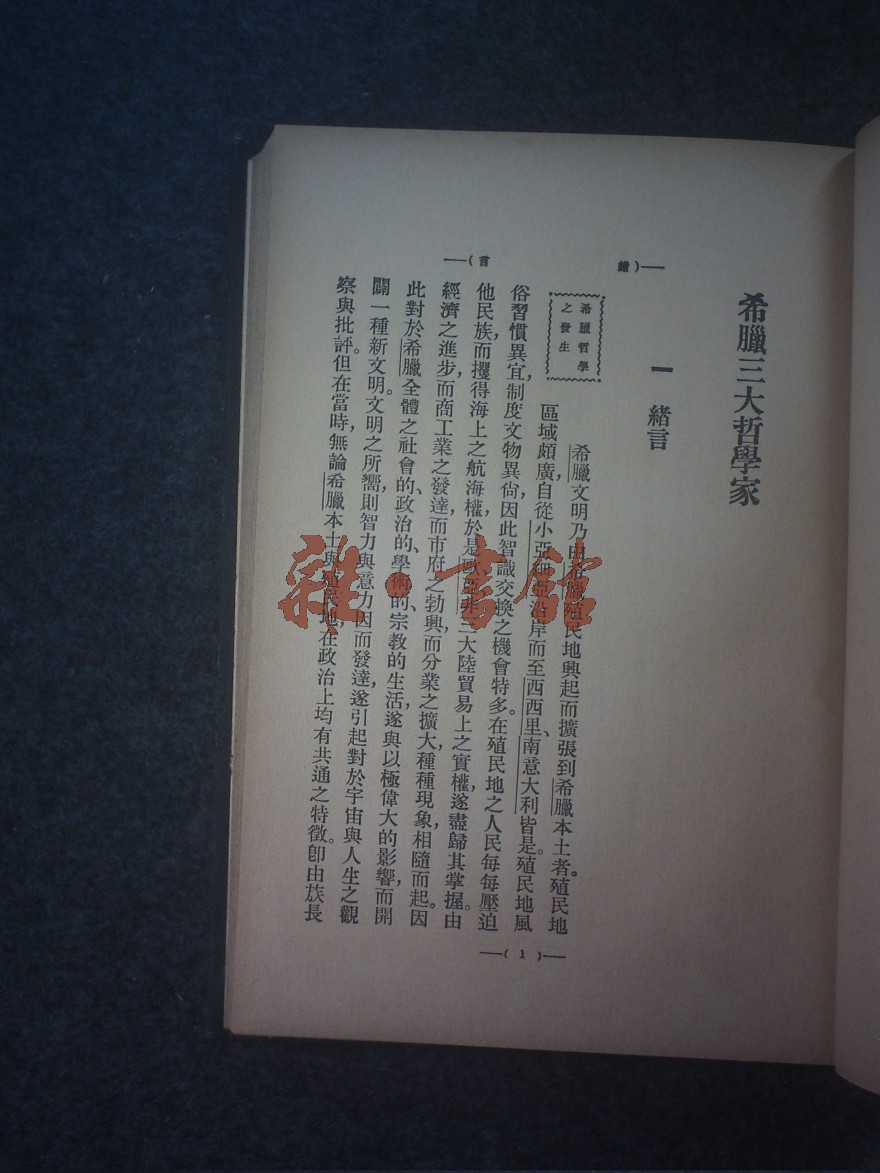 希臘三大哲學家
一 緒言
——(緒
言)——
希臘哲學
之發生
希臘文明乃由希臘殖民地興起而擴張到希臘本土者。殖民地
區域頗廣,自從小亞細亞沿岸而至西西里、南意大利皆是。殖民地風
俗習慣異宜,制度文物異尙,因此智識交換之機會特多。在殖民地之人民每每壓迫
他民族,而攫得海上之航海權,於是歐亞非三大陸貿易上之實權,遂盡歸其掌握。由
經濟之進步而商工業之發達,而市府之勃興,而分業之擴大,種種現象,相隨而起。因
此對於希臘全體之社會的、政治的、學術的、宗教的生活,遂與以極偉大的影響,而開
闢一種新文明。文明之所嚮,則智力與意力因而發達,遂引起對於宇宙與人生之觀
察與批評。但在當時,無論希臘本土與殖民地,在政治上均有共通之特徵。卽由族長
——( 1 )——
雜·書館